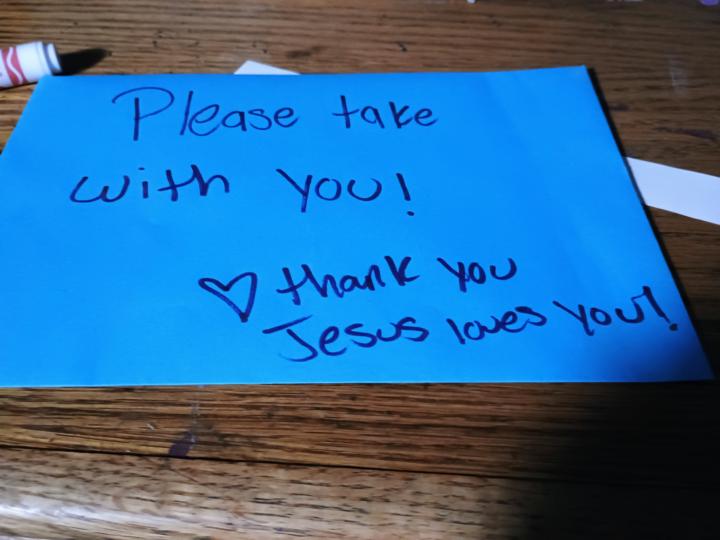 Please take
with you!
♡ thank you
Jesus loves you!